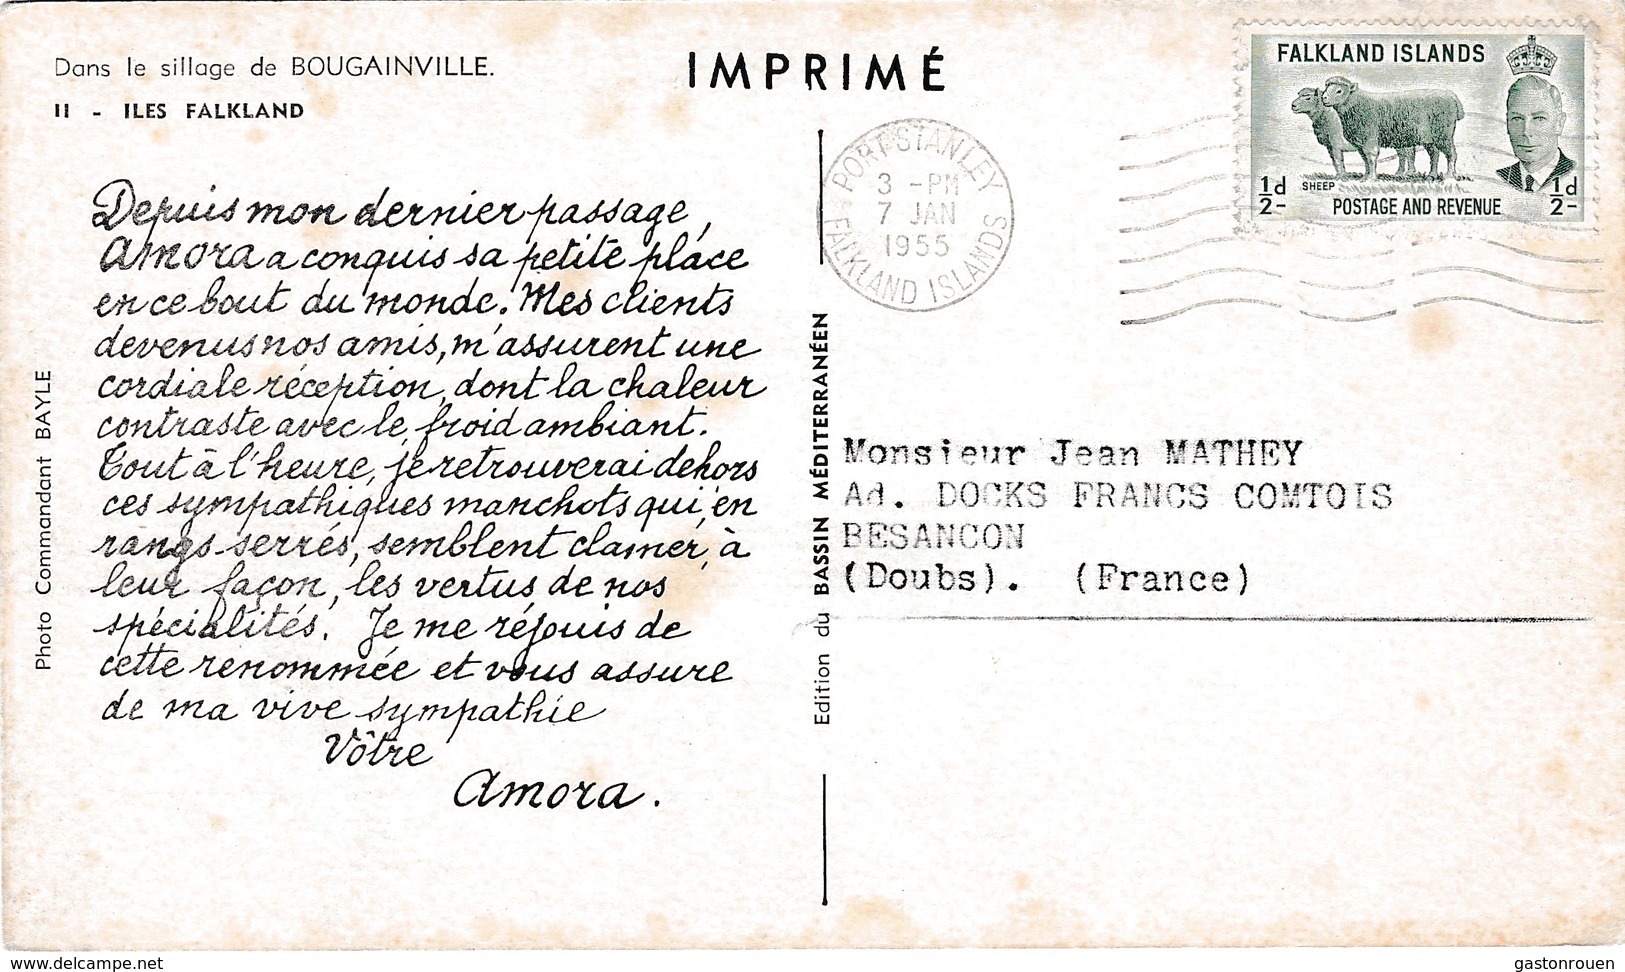 Dans le sillage de BOUGAINVILLE.
II - ILES FALKLAND
IMPRIMÉ
Depuis mon dernier passage,
Amora a conquis sa petite place
en ce bout du monde. Mes clients
devenus nos amis, m'assurent une
cordiale réception, dont la chaleur
contraste avec le froid ambiant.
Tout à l'heure, je retrouverai dehors
ces sympathiques manchots qui, en
rangs serrés, semblent clamer, à
leur façon, les vertus de nos
spécialités. Je me réjouis de
cette renommée et vous assure
de ma vive sympathie
Vôtre
Amora.
Photo Commandant BAYLE
Edition du BASSIN MÉDITERRANÉEN
PORT STANLEY
3 - PM
7 JAN
1955
FALKLAND ISLANDS
FALKLAND ISLANDS
SHEEP
1/2d-
POSTAGE AND REVENUE
1/2d-
Monsieur Jean MATHEY
Ad. DOCKS FRANCS COMTOIS
BESANCON
(Doubs). (France)
www.delcampe.net
gastonrouen